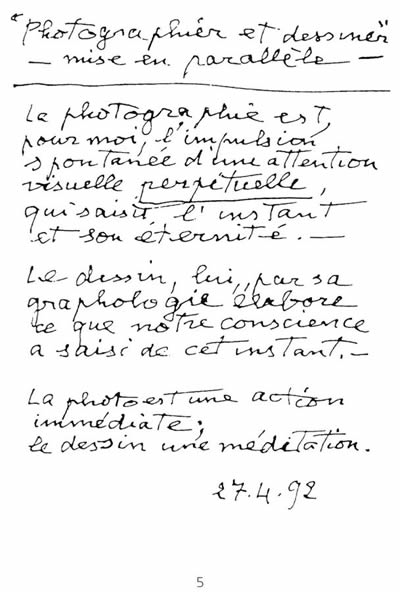 "Photographier et dessiner"
— mise en parallèle —
La photographie est,
pour moi, l'impulsion
spontanée d'une attention
visuelle perpétuelle,
qui saisit l'instant
et son éternité. —
Le dessin, lui, par sa
graphologie élabore
ce que notre conscience
a saisi de cet instant. —
La photo est une action
immédiate;
le dessin une méditation.
27.4.92
5